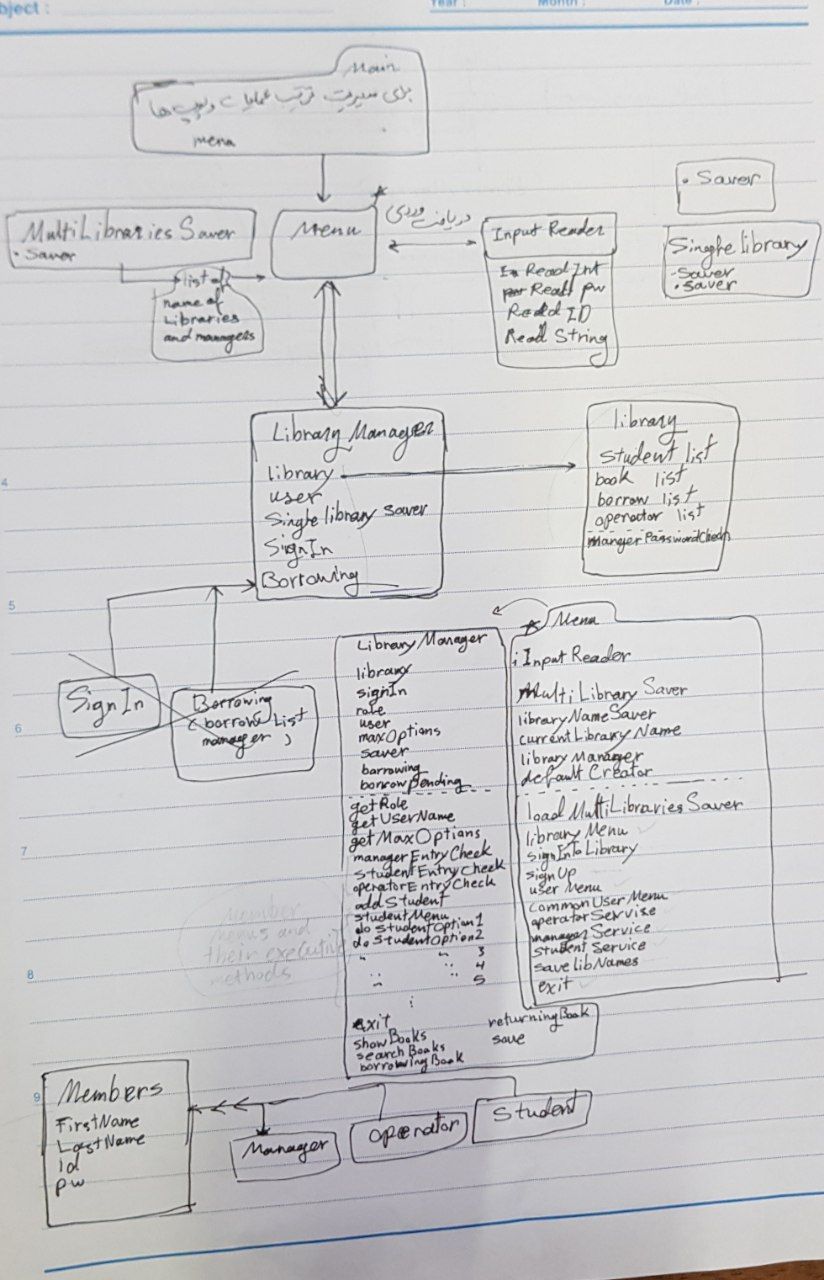 bject :
Year :
Month :
Date :
Main
برای مدیریت ترتیب عملیات و
menu
MultiLibraries Saver
• Saver
list of
name of
Libraries
and managers
Menu
دریافت ورودی
Input Reader
Read Int
Read pw
Read ID
Read String
• Saver
Single library
-Saver
• saver
Library Manager
library
user
Single library saver
SignIn
Borrowing
library
student list
book list
borrow list
operator list
mangerPasswordCheck
4
5
6
7
8
9
SignIn
Borrowing
( borrow List
manager )
Library Manager
library
signIn
role
user
maxOptions
saver
borrowing
borrowpending
getRole
getUserName
getMaxOptions
managerEntryCheck
studentEntryCheck
operatorEntryCheck
addStudent
studentMenu
do StudentOption1
do StudentOption2
" " 3
" " 4
" " 5
exit
showBooks
searchBooks
borrowingBook
returningBook
save
Menu
InputReader
MultiLibrarySaver
libraryNameSaver
currentLibraryName
libraryManager
defaultCreator
load MultiLibrariesSaver
libraryMenu
signIntoLibrary
signUp
userMenu
commonUserMenu
operatorServise
managerService
studentService
saveLibNames
exit
Member
menus and
their executive
methods
Members
FirstName
LastName
id
pw
Manager
operator
Student